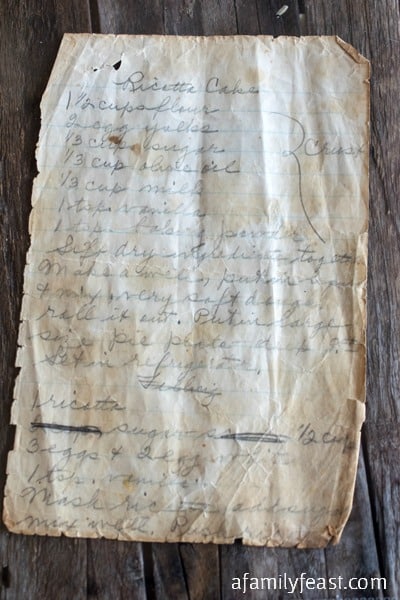 Ricotta Cake
1 1/2 cups flour
2 egg yolks
1/3 cup sugar
1/3 cup olive oil
Crust
1/3 cup milk
1 tsp. vanilla
1 tsp. baking powder
Sift dry ingredients together
Make a well, put in
& mix. very soft dough
roll it out. Put in large
size pie plate
Set in refrigerate.
1 ricotta
sugar 1/2 cup
3 eggs & 2 egg whites
1 tsp. vanilla
Mash ricotta
mix well.
afamilyfeast.com